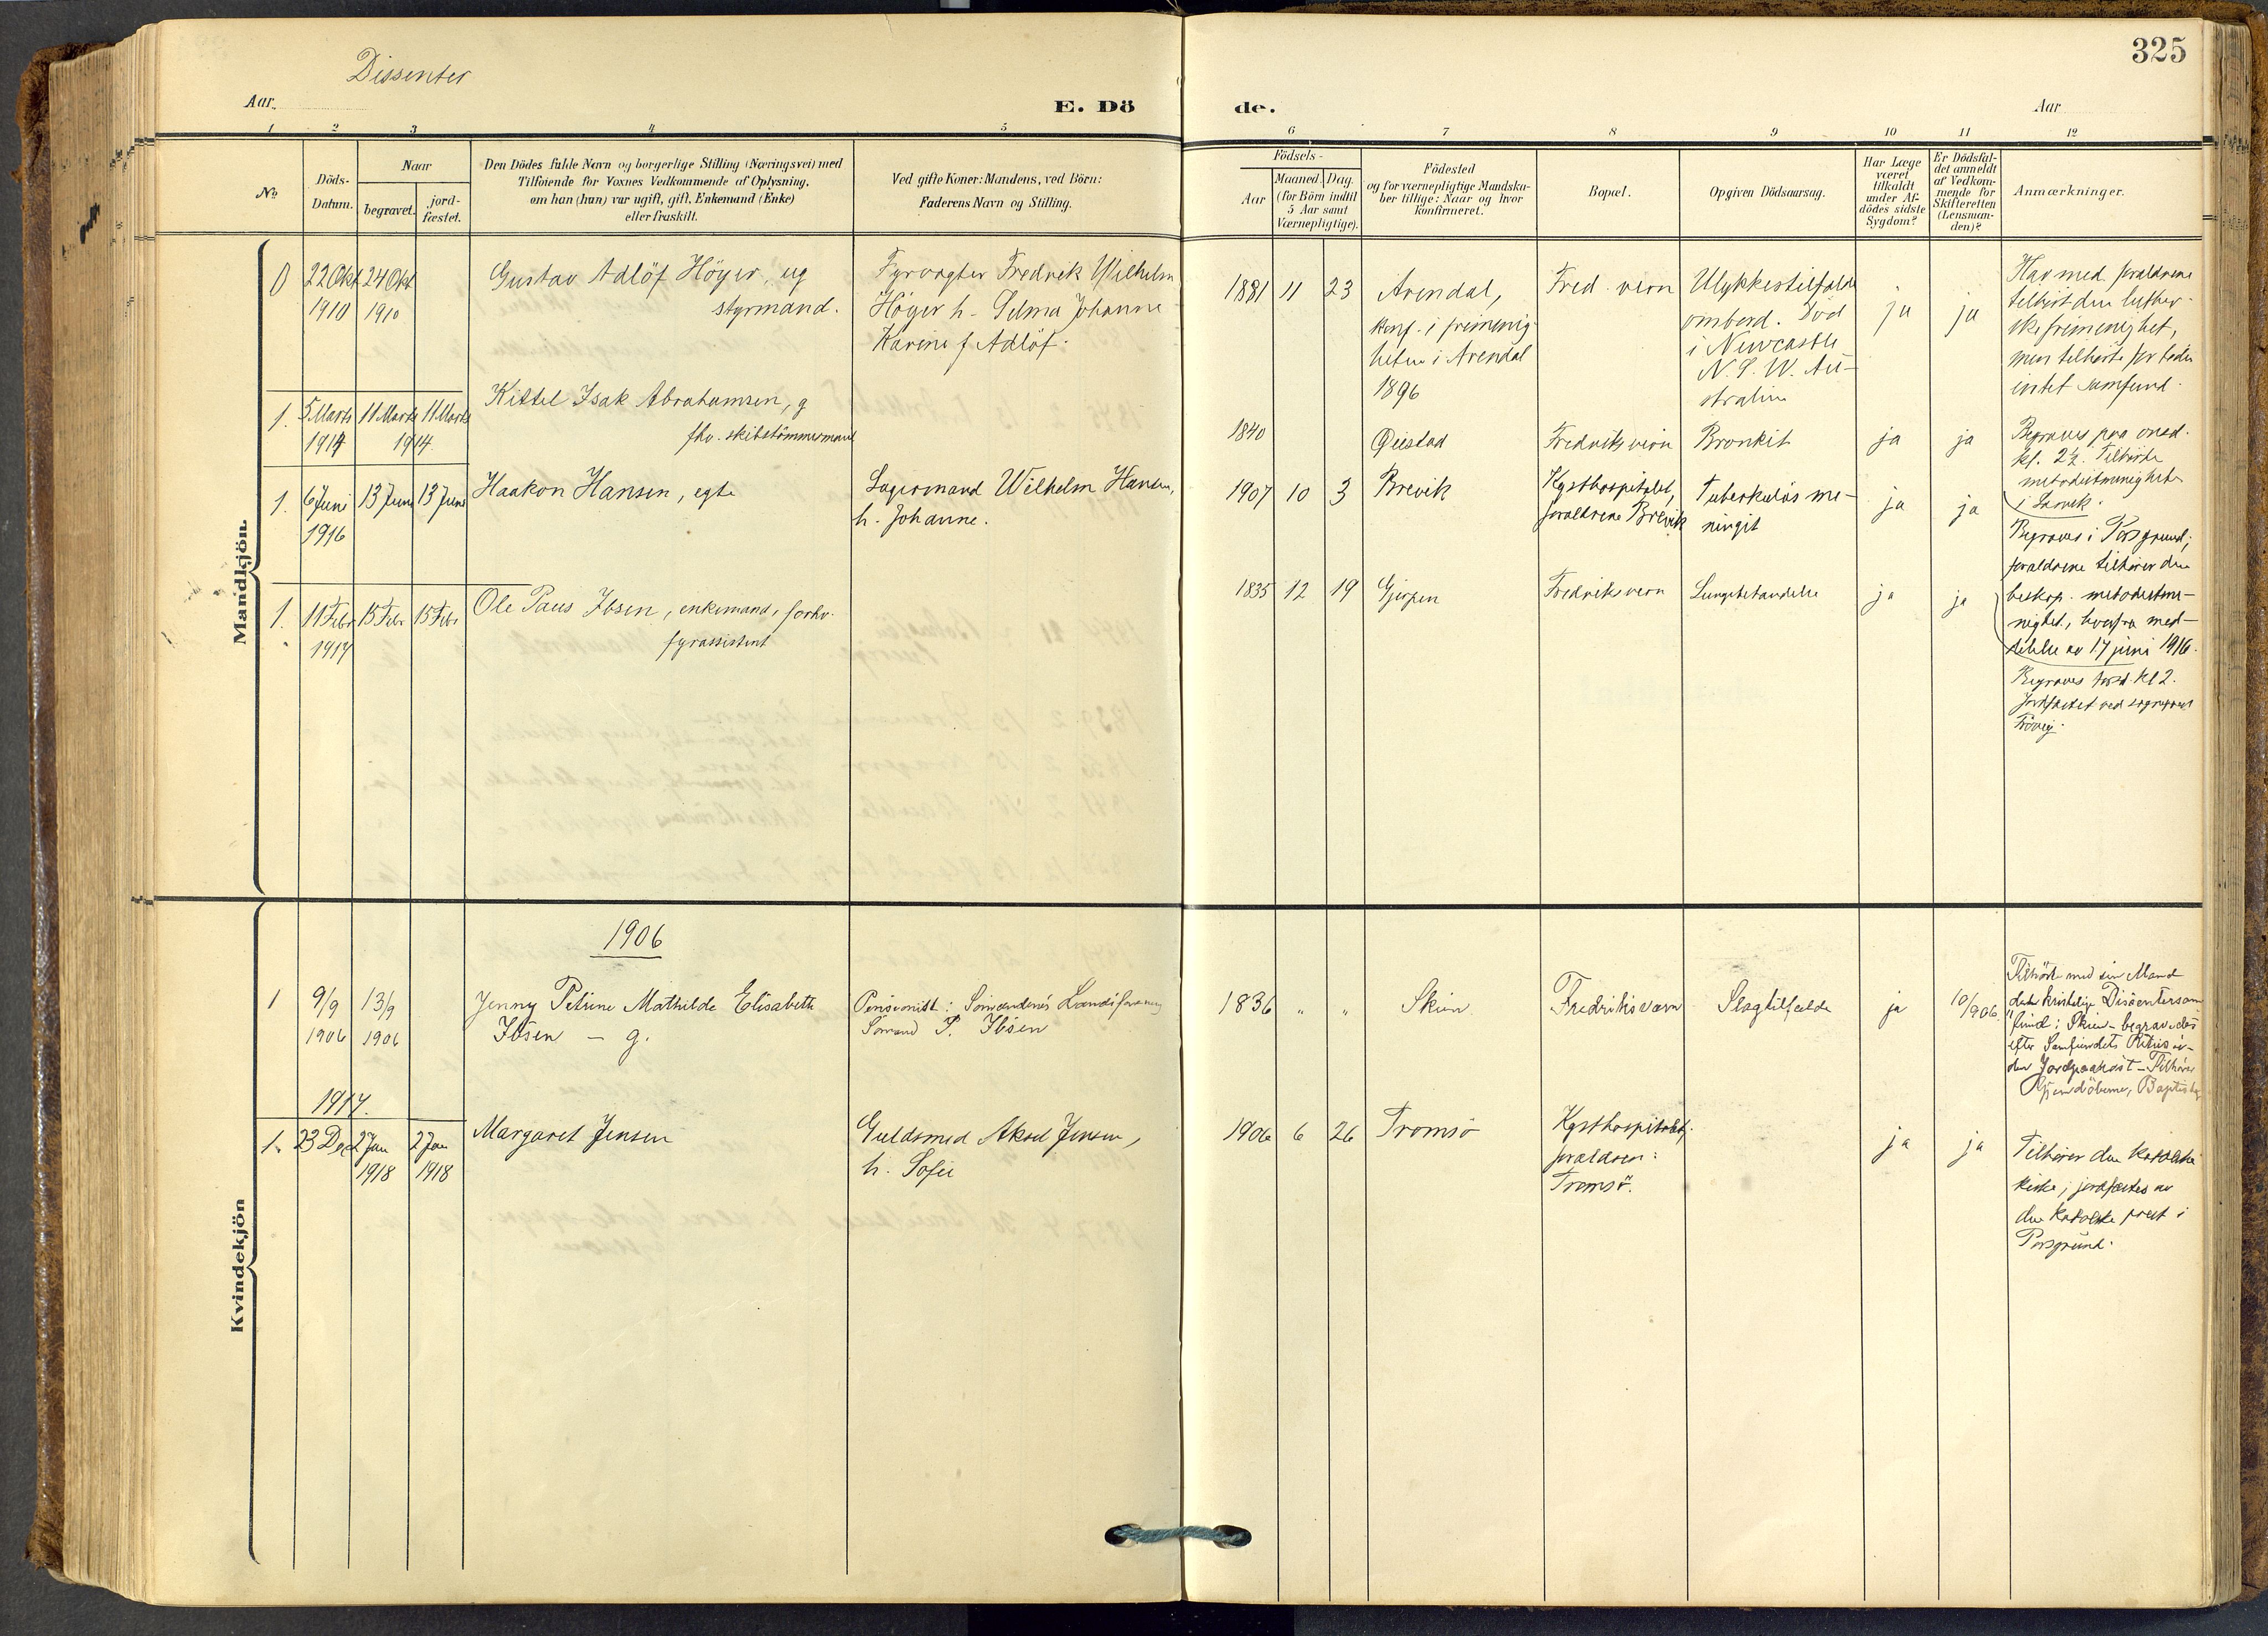 325
Dissenter
Aar.
E. Dö
de.
Aar
1 2 3 4 5 6 7 8 9 10 11 12
No.
Döds-
Datum.
Naar
begravet.
jord-
fæstet.
Den Dödes fulde Navn og borgerlige Stilling (Næringsvei) med
Tilföiende for Voxnes Vedkommende af Oplysning,
om han (hun) var ugift, gift, Enkemand (Enke)
eller fraskilt.
Ved gifte Koner: Mandens, ved Börn:
Faderens Navn og Stilling.
Födsels-
Aar
Maaned. Dag.
(for Börn indtil
5 Aar samt
Værnepligtige).
Födested
og for værnepligtige Mandska-
ber tillige: Naar og hvor
konfirmeret.
Bopæl.
Opgiven Dödsaarsag.
Har Læge
været
tilkaldt
under Af-
dödes sidste
Sygdom?
Er Dödsfal-
det anmeldt
af Vedkom-
mende for
Skifteretten
(Lensman-
den)?
Anmærkninger.
Mandkjön.
0
22 Okt
1910
24 Okt
1910
Gustav Adlöf Höyer, ug
styrmand.
Fyrvogter Fredrik Wilhelm
Höyer h. Selma Johanne
Karine f. Adlöf.
1881 11 23
Arendal,
konf. i frimenig-
heten i Arendal
1896
Fred. vern
Ulykkestilfælde
ombord. Död
i Newcastle
N. S. W. Au-
stralien
ja
ja
Har med forældrene
tilhört den luther-
ske frimenighet,
men tilhörte før døden
intet samfund.
1.
5 Marts
1914
11 Marts 11 Marts
1914
Kittel Isak Abrahamsen, g
fhv. skibstömmermand
1840
Øiestad
Fredriksvern
Bronkit
ja
ja
Begraves paa onsd.
kl. 2½. Tilhörte
metodistmenigheten
i Larvik.
1.
6 Juni
1916
13 Juni 13 Juni
Haakon Hansen, egte
Lagermand Wilhelm Hansen,
h. Johanne.
1907 10 3
Brevik
Kysthospitalet,
forældrene Brevik
Tuberkuløs me-
ningit
ja
ja
Begraves i Porsgrund;
forældrene tilhører den
biskop. metodistme-
nighet, hvorfra med-
delelse av 17 juni 1916.
1.
11 Febr
1917
15 Febr 15 Febr
Ole Paus Ibsen, enkemand, forhv.
fyrassistent
1835 12 19
Gjerpen
Fredriksvern
Lungebetændelse
ja
ja
Begraves torsd. kl 2.
Jordfæstet ved sogneprest
Kvindekjön
1906
1
9/9
1906
13/9
1906
Jenny Petrine Mathilde Elisabeth
Ibsen – g.
Pensionist i Sömændenes
Sömand P. Ibsen
1836 " "
Skien
Fredriksværn
Slagtilfælde
ja
10/9 06.
Tilhörte med sin Mand
det kristelige Dissentersam-
fund i Skien – begravedes
efter Samfundets Ritus u-
den Jordpaakast – Tilhører
Gjendöberne, Baptister
1917.
1.
23 Dec
2 Jan
1918
2 Jan
1918
Margaret Jensen
Guldsmed Aksel Jensen,
h. Sofie
1906 6 26
Tromsö
Kysthospitalet;
forældren:
Tromsö.
ja
ja
Tilhører den katolske
kirke; jordfæstes av
den katolske prest i
Porsgrund.